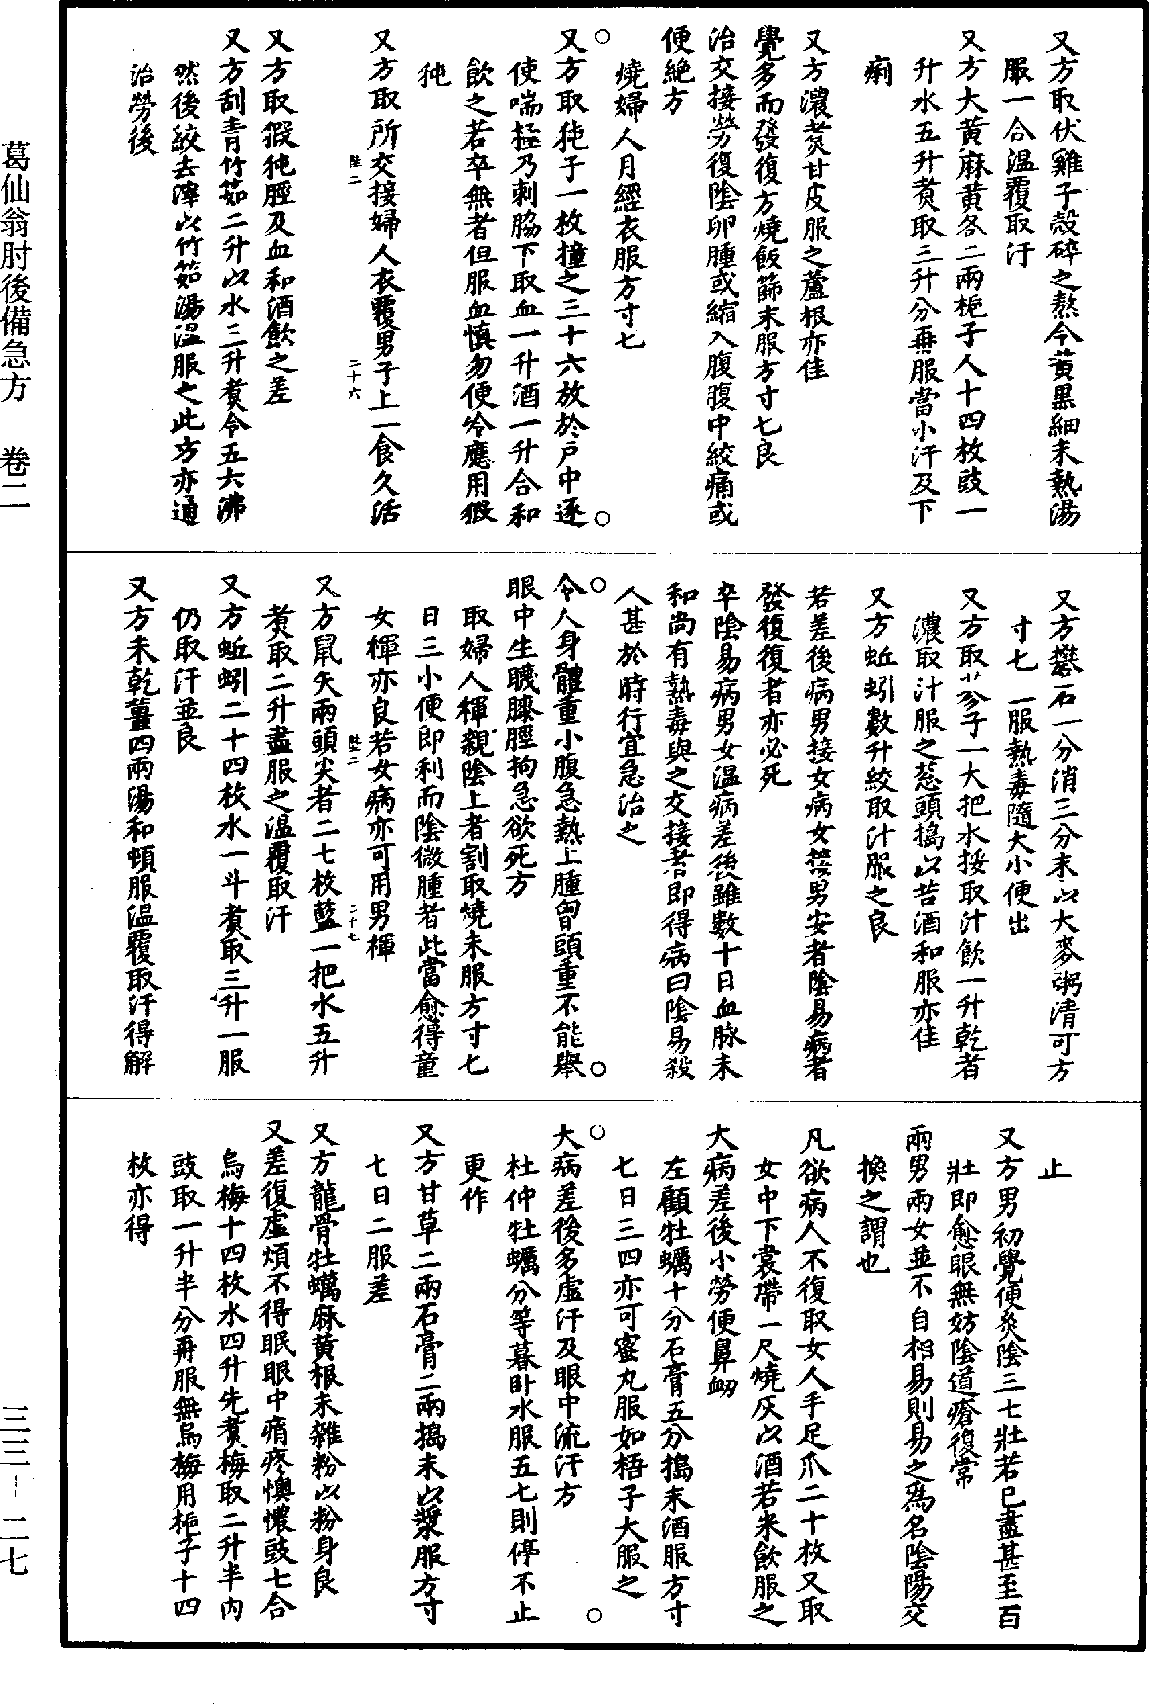 又方取伏雞子殼碎之熬令黃黑細末熱湯
服一合溫覆取汗
又方大黃麻黃各二兩梔子人十四枚豉一
升水五升煑取三升分再服當小汗及下
痢
又方濃煑甘皮服之蘆根亦佳
覺多而發復方燒飯篩末服方寸匕良
治交接勞復陰卵腫或縮入腹腹中絞痛或
便絶方
燒婦人月經衣服方寸匕
又方取㹠子一枚撞之三十六放於戶中逐
使喘極乃刺脇下取血一升酒一升合和
飲之若卒無者但服血慎勿便冷應用猳
㹠
又方取所交接婦人衣覆男子上一食久活
陞二 二十六
又方取猳㹠脛及血和酒飲之差
又方刮青竹茹二升以水三升煑令五六沸
然後絞去滓以竹茹湯溫服之此方亦通
治勞後
又方礬石一分消三分末以大麥粥清可方
寸匕一服熱毒隨大小便出
又方取子一大把水挼取汁飲一升乾者
濃取汁服之葱頭搗以苦酒和服亦佳
又方蚯蚓數升絞取汁服之良
若差後病男接女病女接男安者陰易病者
發復復者亦必死
卒陰易病男女溫病差後雖數十日血脉未
和尚有熱毒與之交接者即得病曰陰易殺
人甚於時行宜急治之
令人身體重小腹急熱上腫胷頭重不能舉
眼中生膝脛拘急欲死方
取婦人褌親陰上者割取燒末服方寸匕
日三小便即利而陰微腫者此當愈得童
女褌亦良若女病亦可用男褌
陞二 二十七
又方鼠矢兩頭尖者二七枚藍一把水五升
煑取二升盡服之溫覆取汗
又方蚯蚓二十四枚水一斗煑取三升一服
仍取汗並良
又方末乾薑四兩湯和頓服溫覆取汗得解
止
又方男初覺便灸陰三七壯若已盡甚至百
壯即愈眼無妨陰道瘡復常
兩男兩女並不自相易則易之爲名陰陽交
換之謂也
凡欲病人不復取女人手足爪二十枚又取
女中下裳帶一尺燒灰以酒若米飲服之
大病差後小勞便鼻衂
左顧牡蠣十分石膏五分搗末酒服方寸
七日三四亦可蜜丸服如梧子大服之
大病差後多虛汗及眼中流汗方
杜仲牡蠣分等暮卧水服五七則停不止
更作
又方甘草二兩石膏二兩搗末以漿服方寸
七日二服差
又方龍骨牡蠣麻黃根末雜粉以粉身良
又差復虛煩不得眠眼中痟疼懊憹豉七合
烏梅十四枚水四升先煑梅取二升半内
豉取一升半分再服無烏梅用梔子十四
枚亦得
葛仙翁肘後備急方 卷二
三三－二七